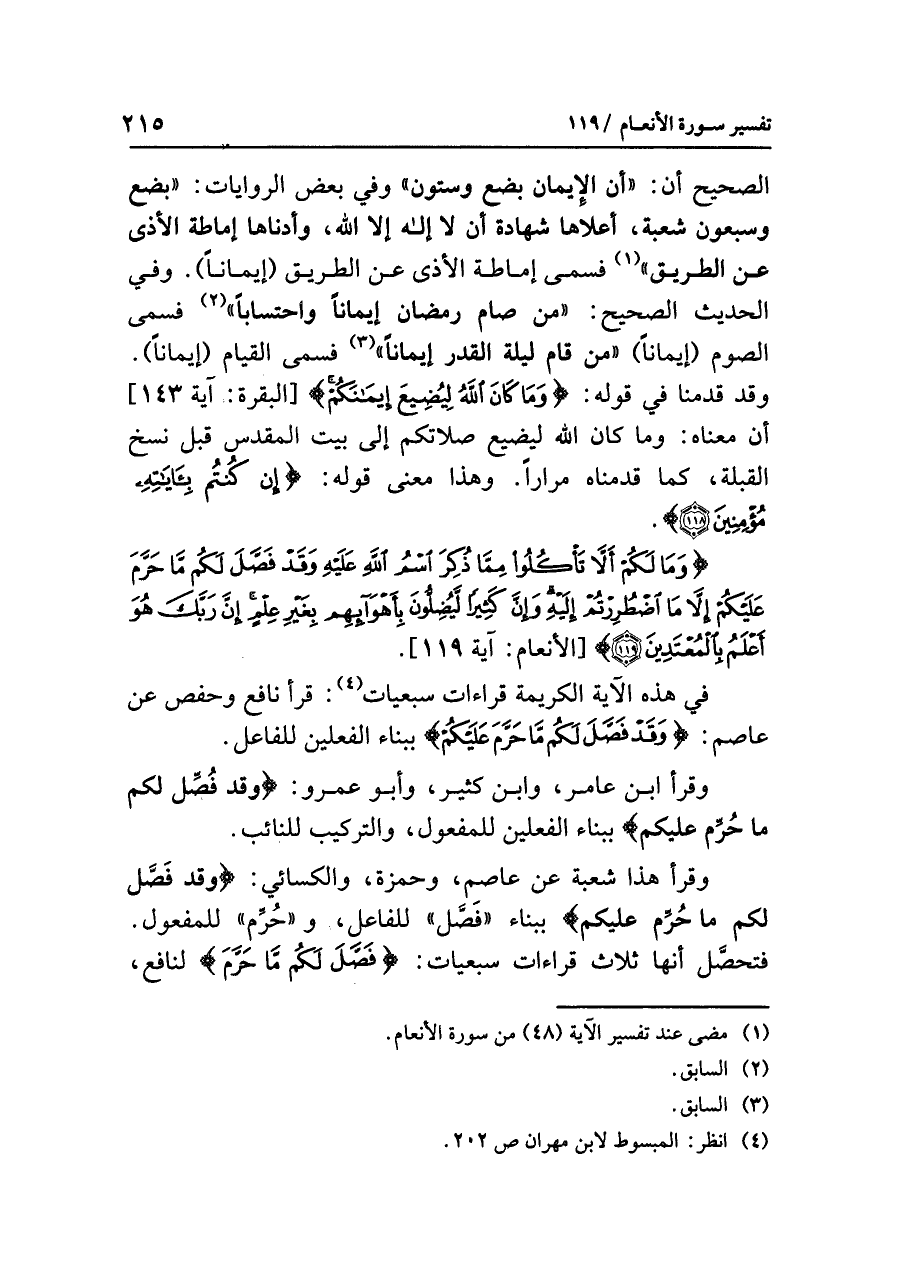 تفسير سورة الأنعام / ١١٩
٢١٥
الصحيح أن: «أن الإيمان بضع وستون» وفي بعض الروايات: «بضع
وسبعون شعبة، أعلاها شهادة أن لا إله إلا الله، وأدناها إماطة الأذى
عن الطريق»(١) فسمى إماطة الأذى عن الطريق (إيماناً). وفي
الحديث الصحيح: «من صام رمضان إيماناً واحتساباً»(٢) فسمى
الصوم (إيماناً) «من قام ليلة القدر إيماناً»(٣) فسمى القيام (إيماناً).
وقد قدمنا في قوله: ﴿وَمَا كَانَ ٱللَّهُ لِيُضِيعَ إِيمَٰنَكُمْۚ﴾ [البقرة: آية ١٤٣]
أن معناه: وما كان الله ليضيع صلاتكم إلى بيت المقدس قبل نسخ
القبلة، كما قدمناه مراراً. وهذا معنى قوله: ﴿إِن كُنتُم بِـَٔايَٰتِهِۦ
مُؤْمِنِينَ ١١٨﴾.
﴿وَمَا لَكُمْ أَلَّا تَأْكُلُوا۟ مِمَّا ذُكِرَ ٱسْمُ ٱللَّهِ عَلَيْهِ وَقَدْ فَصَّلَ لَكُم مَّا حَرَّمَ
عَلَيْكُمْ إِلَّا مَا ٱضْطُرِرْتُمْ إِلَيْهِۗ وَإِنَّ كَثِيرًا لَّيُضِلُّونَ بِأَهْوَآئِهِم بِغَيْرِ عِلْمٍۚ إِنَّ رَبَّكَ هُوَ
أَعْلَمُ بِٱلْمُعْتَدِينَ ١١٩﴾ [الأنعام: آية ١١٩].
في هذه الآية الكريمة قراءات سبعيات(٤): قرأ نافع وحفص عن
عاصم: ﴿وَقَدْ فَصَّلَ لَكُم مَّا حَرَّمَ عَلَيْكُمْ﴾ ببناء الفعلين للفاعل.
وقرأ ابن عامر، وابن كثير، وأبو عمرو: ﴿وقد فُصِّل لكم
ما حُرِّم عليكم﴾ ببناء الفعلين للمفعول، والتركيب للنائب.
وقرأ هذا شعبة عن عاصم، وحمزة، والكسائي: ﴿وقد فَصَّل
لكم ما حُرِّم عليكم﴾ ببناء «فَصَّل» للفاعل، و «حُرِّم» للمفعول.
فتحصَّل أنها ثلاث قراءات سبعيات: ﴿فَصَّلَ لَكُم مَّا حَرَّمَ﴾ لنافع،
(١) مضى عند تفسير الآية (٤٨) من سورة الأنعام.
(٢) السابق.
(٣) السابق.
(٤) انظر: المبسوط لابن مهران ص ٢٠٢.